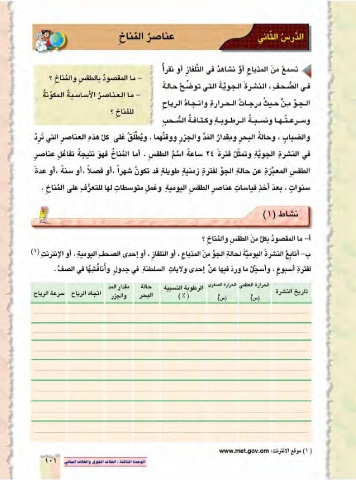 الدَّرسُ الثَّاني
عناصرُ المُناخ
نسمعُ منَ المذياعِ أوْ نشاهدُ في التِّلفازِ أو نقرأُ
في الصُّحفِ ، النشرةَ الجويَّةَ التي توضحُ حالةَ
الجـوِّ مِنْ حيثُ درجاتُ الحـرارةِ واتجـاهُ الرياحِ
وسرعتُـها ونسبـةُ الـرطوبـةِ وكثافـةُ السُّحبِ
– ما المقصودُ بالطقسِ والمُناخِ ؟
– ما العناصرُ الأساسيةُ المكوّنةُ
للمُناخِ ؟
والضبابِ ، وحالةُ البحرِ ومقدارُ المَدِّ والجزرِ ووقتُهما . ويُطْلَقُ على كلِّ هذهِ العناصرِ التي تَرِدُ
في النشرةِ الجويّةِ وتمثّلُ فترةَ ٢٤ ساعةً اسْمُ الطقسِ . أما المُناخُ فهوَ نتيجةُ تفاعُلِ عناصرِ
الطقسِ المعبّرةِ عن حالةِ الجوِّ لفترةٍ زمنيةٍ طويلةٍ قد تكونُ شهراً ، أو فصلاً ، أو سنةً ، أو عدةَ
سنواتٍ ، بعدَ أخذِ قياساتِ عناصرِ الطقسِ اليوميةِ وعملِ متوسطاتٍ لها للتعرُّفِ على المُناخِ .
نشاط (١)
أ– ما المقصودُ بكلٍّ منَ الطقسِ والمُناخِ ؟
ب– أتابعُ النشرةَ اليوميّةَ لحالةِ الجوِّ منَ المذياعِ ، أو التلفازِ ، أو إحدى الصحفِ اليوميةِ ، أو الإنترنت (١)
لفترةِ أسبوعٍ ، وأسجّلُ ما وردَ فيها عنْ إحدى ولاياتِ السلطنةِ في جدولٍ وأناقشُها في الصفِّ .
تاريخ النشرة
الحرارة العظمى (سْ)
الحرارة الصغرى (سْ)
الرطوبة النسبية (٪)
حالة البحر
مقدار المد والجزر
اتجاه الرياح
سرعة الرياح
(١) موقع الانترنت: www.met.gov.om
الوحدة الثالثة : الغلاف الجوي والغلاف المائي
١٠١